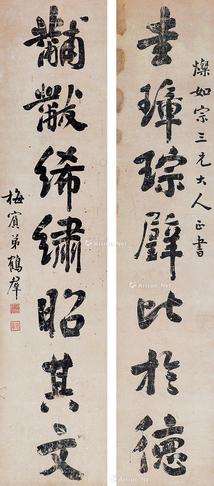 燦如宗三兄大人正書
圭璋琮璧比於德
黼黻絺繡昭其文
梅賓弟鶴羣